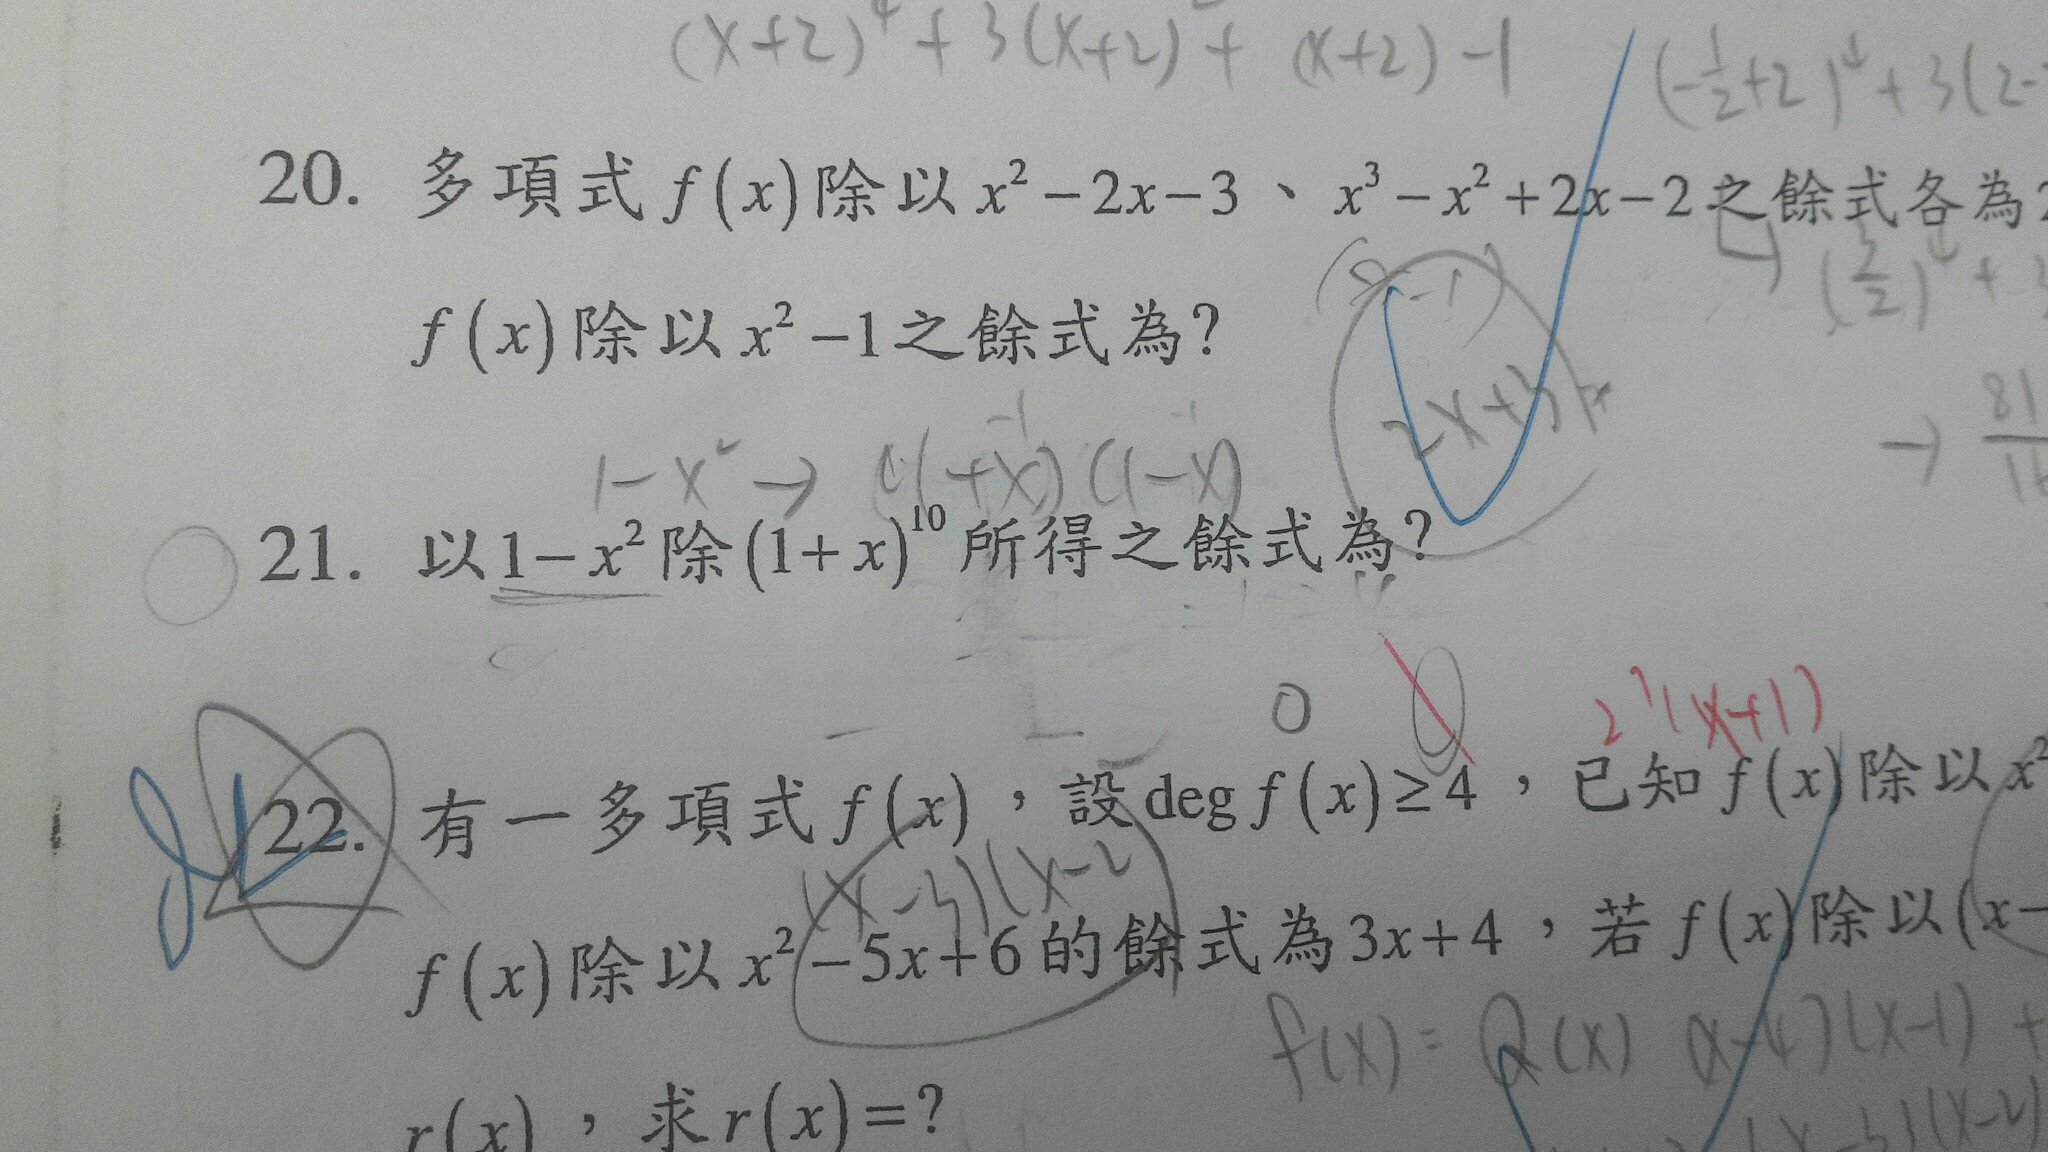 (x+2)⁴ + 3(x+2)² + (x+2) -1
(-1/2+2)⁴ + 3(2-
20. 多項式 f(x) 除以 x² - 2x - 3、x³ - x² + 2x - 2 之餘式各為 2
f(x) 除以 x² - 1 之餘式為?
2x+3
→ 81
1-x² → (1+x) (1-x)
21. 以 1 - x² 除 (1 + x)¹⁰ 所得之餘式為?
0
2⁹(x+1)
22. 有一多項式 f(x),設 deg f(x) ≥ 4,已知 f(x) 除以 x²
(x-3)(x-2
f(x) 除以 x² - 5x + 6 的餘式為 3x + 4,若 f(x) 除以 (x -
f(x) = Q(x) (x-4)(x-1) +
(x-3)(x-2)
r(x),求 r(x) = ?